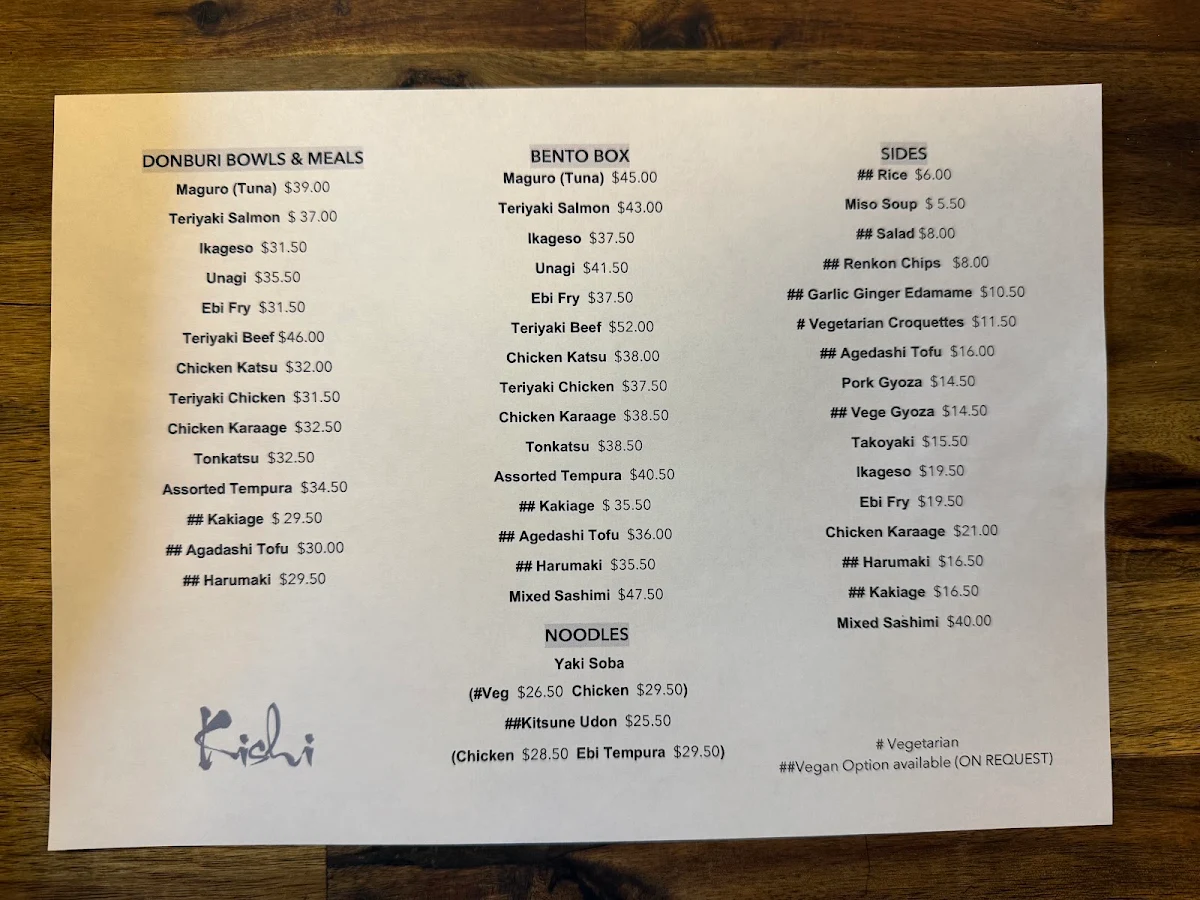 DONBURI BOWLS & MEALS
Maguro (Tuna) $39.00
Teriyaki Salmon $ 37.00
Ikageso $31.50
Unagi $35.50
Ebi Fry $31.50
Teriyaki Beef $46.00
Chicken Katsu $32.00
Teriyaki Chicken $31.50
Chicken Karaage $32.50
Tonkatsu $32.50
Assorted Tempura $34.50
## Kakiage $ 29.50
## Agadashi Tofu $30.00
## Harumaki $29.50
Kishi
BENTO BOX
Maguro (Tuna) $45.00
Teriyaki Salmon $43.00
Ikageso $37.50
Unagi $41.50
Ebi Fry $37.50
Teriyaki Beef $52.00
Chicken Katsu $38.00
Teriyaki Chicken $37.50
Chicken Karaage $38.50
Tonkatsu $38.50
Assorted Tempura $40.50
## Kakiage $ 35.50
## Agedashi Tofu $36.00
## Harumaki $35.50
Mixed Sashimi $47.50
NOODLES
Yaki Soba
(#Veg $26.50 Chicken $29.50)
##Kitsune Udon $25.50
(Chicken $28.50 Ebi Tempura $29.50)
SIDES
## Rice $6.00
Miso Soup $ 5.50
## Salad $8.00
## Renkon Chips $8.00
## Garlic Ginger Edamame $10.50
# Vegetarian Croquettes $11.50
## Agedashi Tofu $16.00
Pork Gyoza $14.50
## Vege Gyoza $14.50
Takoyaki $15.50
Ikageso $19.50
Ebi Fry $19.50
Chicken Karaage $21.00
## Harumaki $16.50
## Kakiage $16.50
Mixed Sashimi $40.00
# Vegetarian
##Vegan Option available (ON REQUEST)